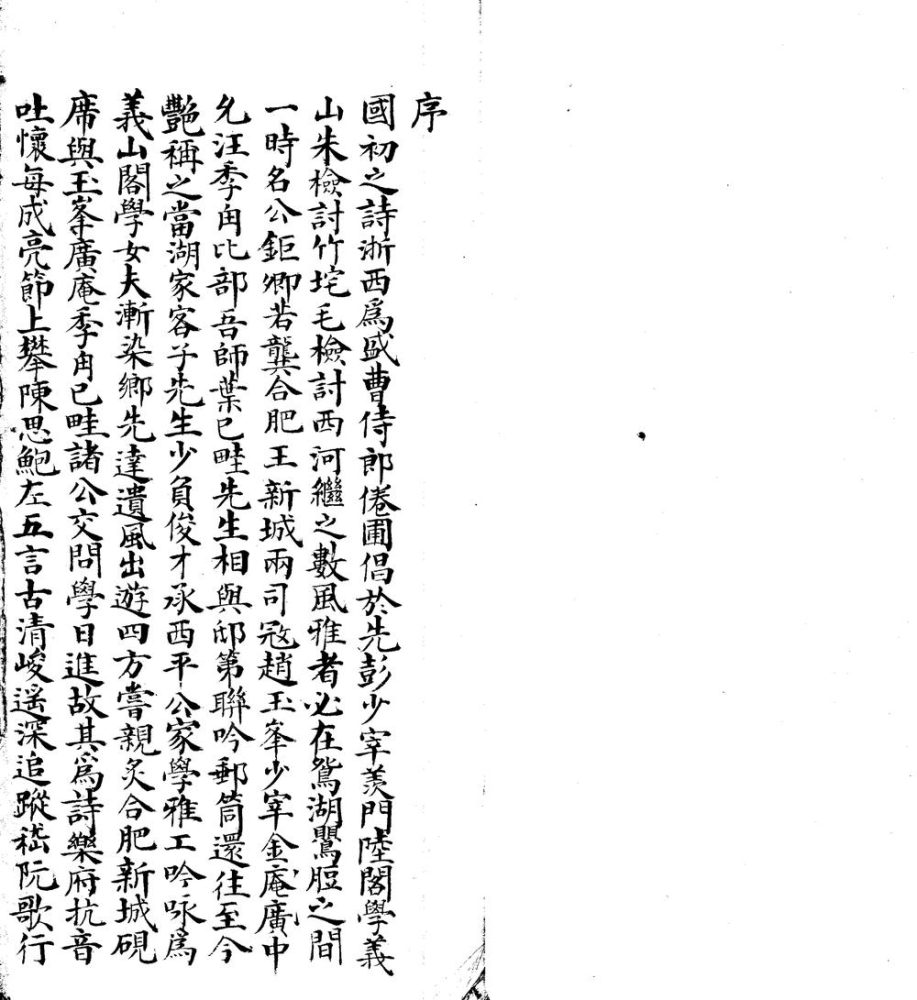 序
國初之詩浙西爲盛曹侍郎倦圃倡於先彭少宰羨門陸閣學義
山朱檢討竹垞毛檢討西河繼之數風雅者必在鴛湖鸎脰之間
一時名公鉅卿若龔合肥王新城兩司冦趙玉峯少宰金庵廣中
允汪季甪比部吾師葉已畦先生相與邸第聯吟郵筒還往至今
艷稱之當湖家客子先生少負俊才承西平公家學雅工吟咏爲
義山閣學女夫漸染鄉先達遺風出遊四方嘗親炙合肥新城硯
席與玉峯廣庵季甪已畦諸公交問學日進故其爲詩樂府抗音
吐懷每成亮節上攀陳思鮑左五言古清峻遥深追蹤嵇阮歌行